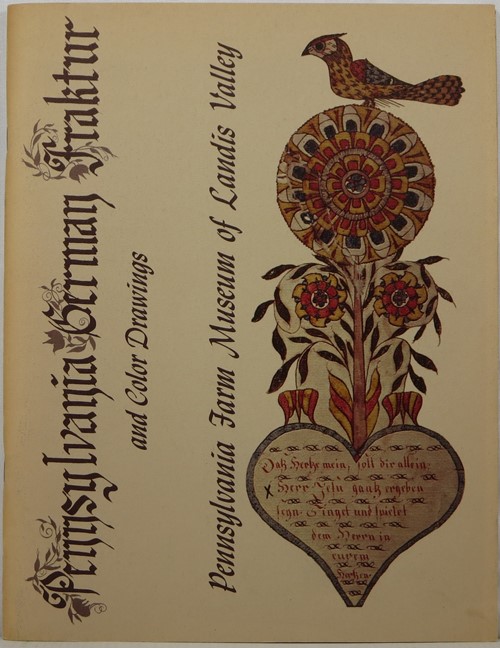 Pennsylvania German Fraktur
and Color Drawings
Pennsylvania Farm Museum of Landis Valley
Daß Hertze mein, soll dir allein,
Herr Jesu gantz ergeben
seyn. Singet und spielet
dem Herrn in
eurem
Hertzen.